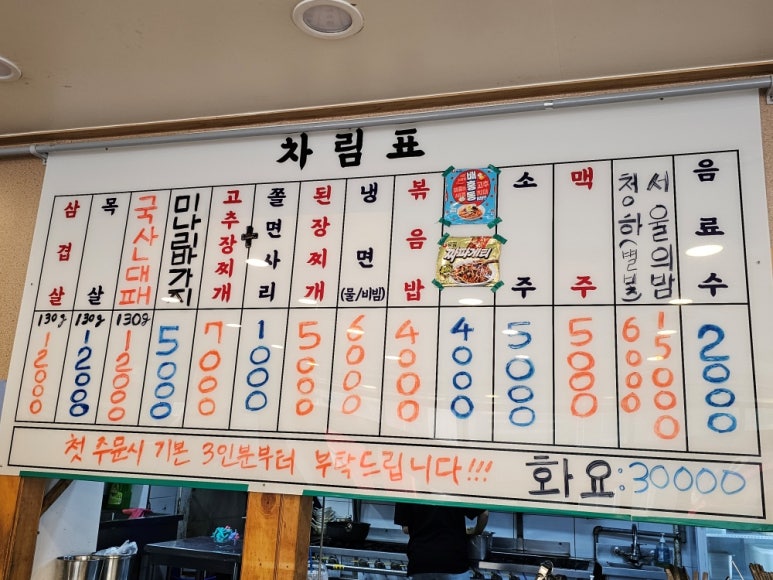 차림표
삼겹살 130g 12000
목살 130g 12000
국산대패 130g 12000
미나리바가지 5000
고추장찌개 7000
+
쫄면사리 1000
된장찌개 5000
냉면 (물/비빔) 6000
볶음밥 4000
배홍동 짜파게티 4000
소주 5000
맥주 5000
청하(별빛) 6000
서울의밤 15000
음료수 2000
첫 주문시 기본 3인분부터 부탁드립니다!!!
화요:30000